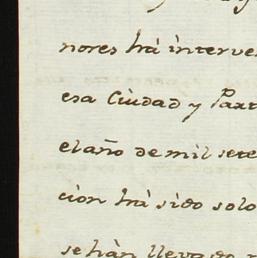 nores há interve
esa Ciudad y Part
el año de mil sete
cion há sido solo
se hàn llevado